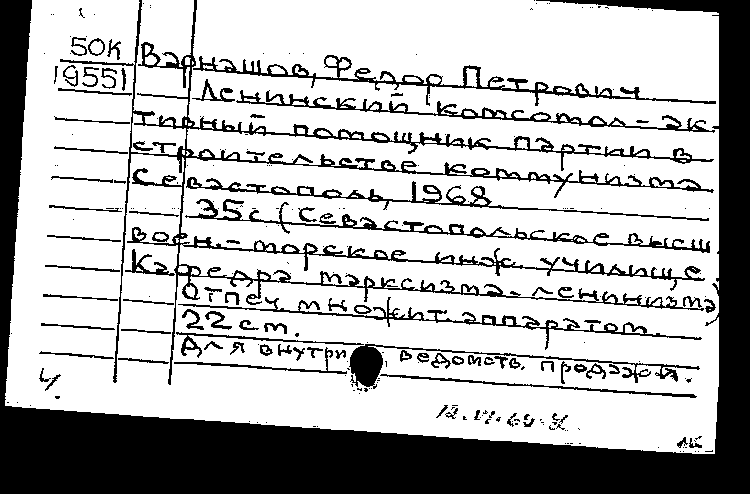 50К Варнашов, Федор Петрович
19551 Ленинский комсомол - ак-
тивный помощник партии в
строительстве коммунизма
Севастополь, 1968.
35с (Севастопольское высш.
воен.-морское инж. училище.
Кафедра марксизма-ленинизма)
Отпеч. множит. аппаратом.
22 cm.
Для внутри ведомств. продажи.